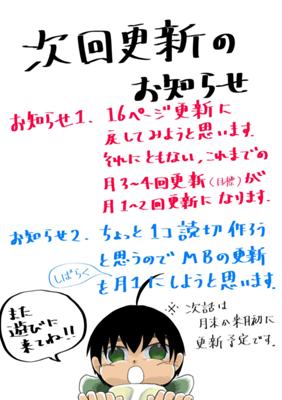 次回更新の
お知らせ
お知らせ1. 16ページ更新に
戻してみようと思います.
それにともない,これまでの
月3~4回更新(目標)が
月1~2回更新になります.
お知らせ2. ちょっと1コ読切作ろう
と思うのでMBの更新
しばらく
を月1にしようと思います.
※ 次話は
月末か来月初に
更新予定です.
また
遊びに
来てね!!